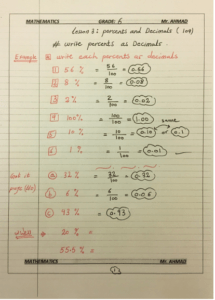 MATHEMATICS GRADE: 6 Mr. AHMAD
Lesson 31 percents and Decimals (
# write percents as Decimals
Example write each percents as decimals
1 56 % = 56/100 = 0.56
2 8 % = 8/100 = 0.08
3 2% = 2/100 = 0.02
4 100% = 100/100 = 1.00
5 10 % = 10/100 = 0.10 or 0.1
6 1 % = 1/100 = 0.01
a 32 % = 32/100 = 0.32
page
b 6 % = 6/100 = 0.06
c 93 % = 0.93
20 % =
55.5 % =
MATHEMATICS Mr. AHMAD
1